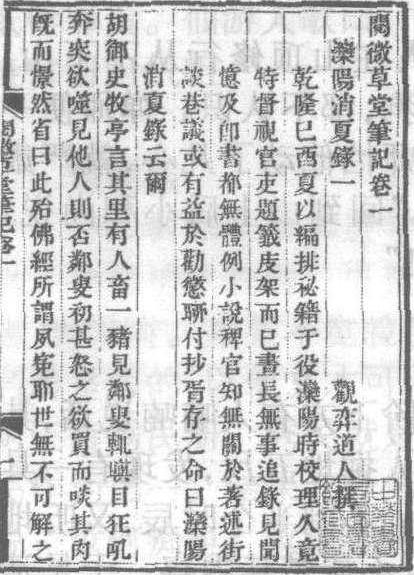 閱微草堂筆記卷一
灤陽消夏錄一
觀弈道人撰
乾隆己酉夏以編排祕籍于役灤陽時校理久竟
特督視官吏題籤庋架而已晝長無事追錄見聞
憶及卽書都無體例小說稗官知無關於著述街
談巷議或有益於勸懲聊付抄胥存之命曰灤陽
消夏錄云爾
胡御史牧亭言其里有人畜一豬見鄰叟輒瞋目狂吼
奔突欲噬見他人則否鄰叟初甚怒之欲買而啖其肉
旣而憬然省曰此殆佛經所謂夙冤耶世無不可解之